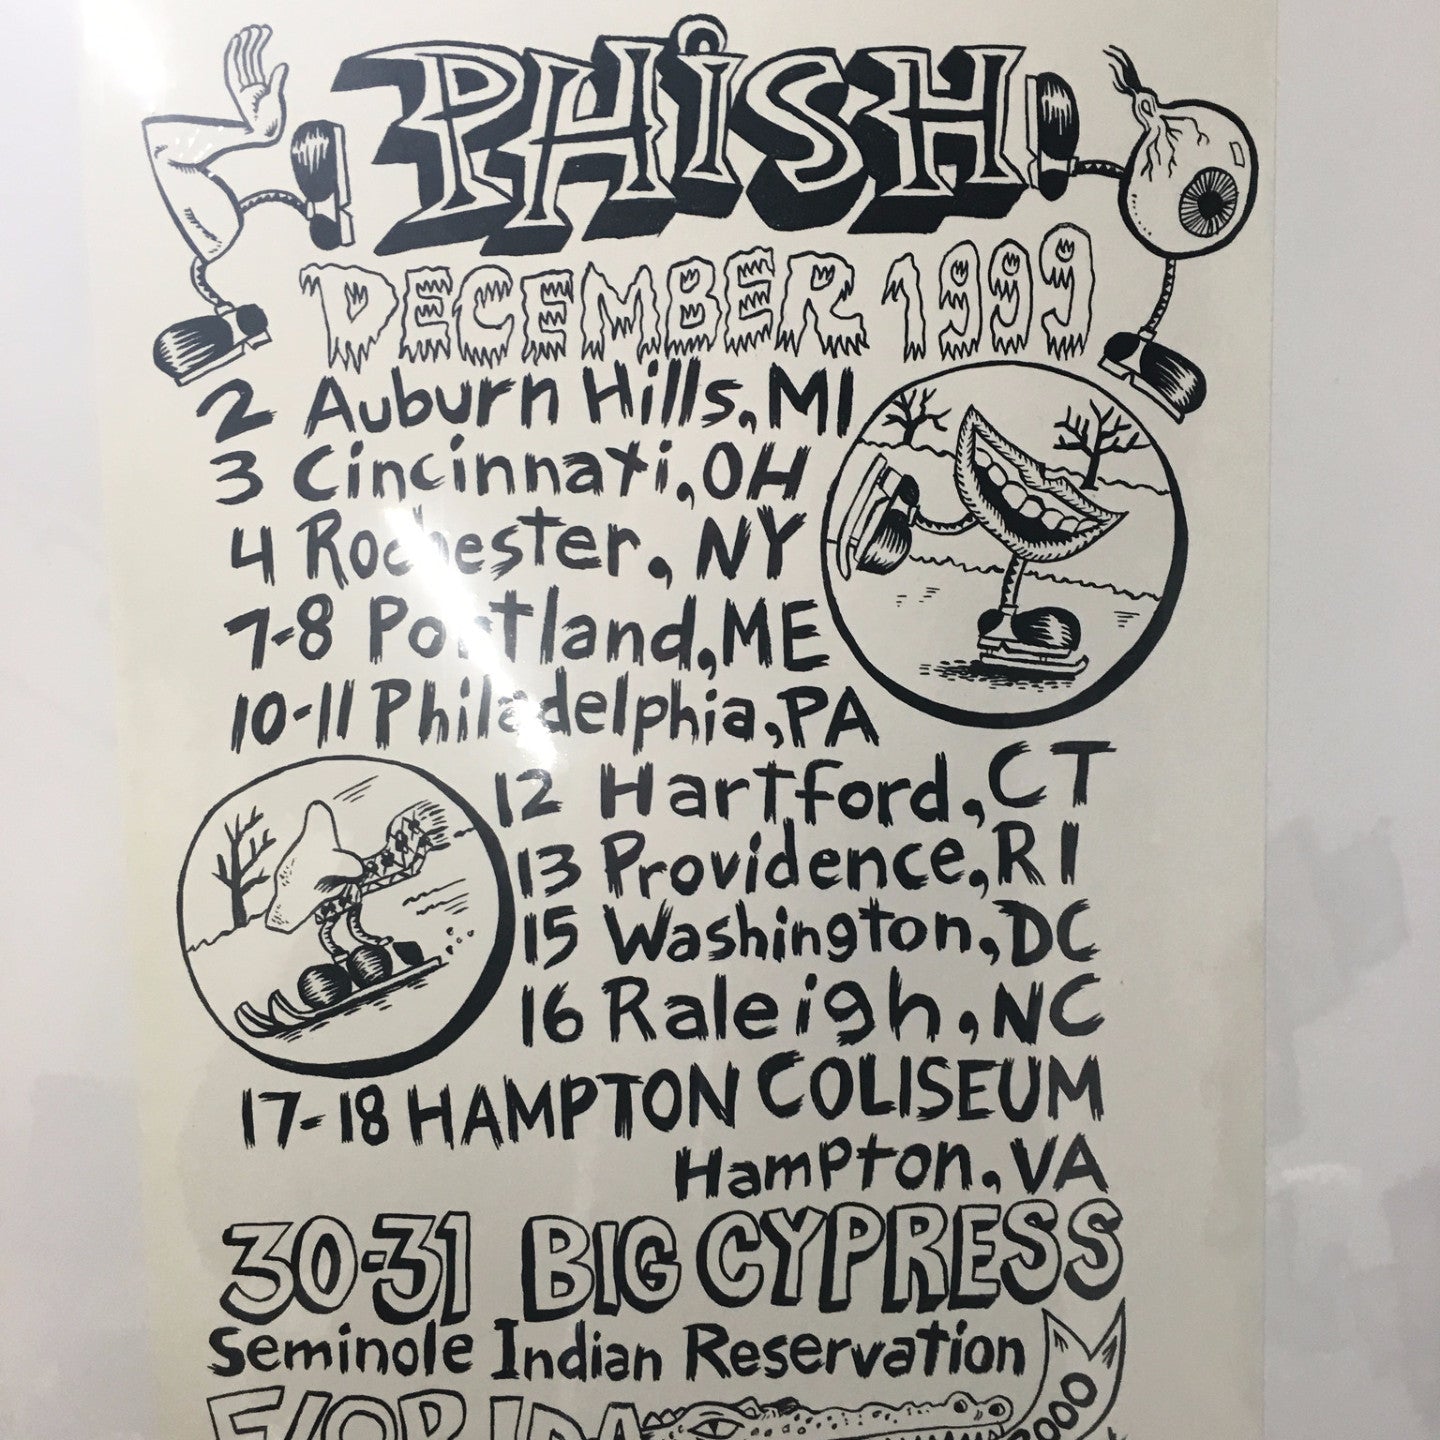 PHiSH
DECEMBER 1999
2 Auburn Hills, MI
3 Cincinnati, OH
4 Rochester, NY
7-8 Portland, ME
10-11 Philadelphia, PA
12 Hartford, CT
13 Providence, RI
15 Washington, DC
16 Raleigh, NC
17-18 HAMPTON COLISEUM
Hampton, VA
30-31 BIG CYPRESS
Seminole Indian Reservation
FLORIDA
2000